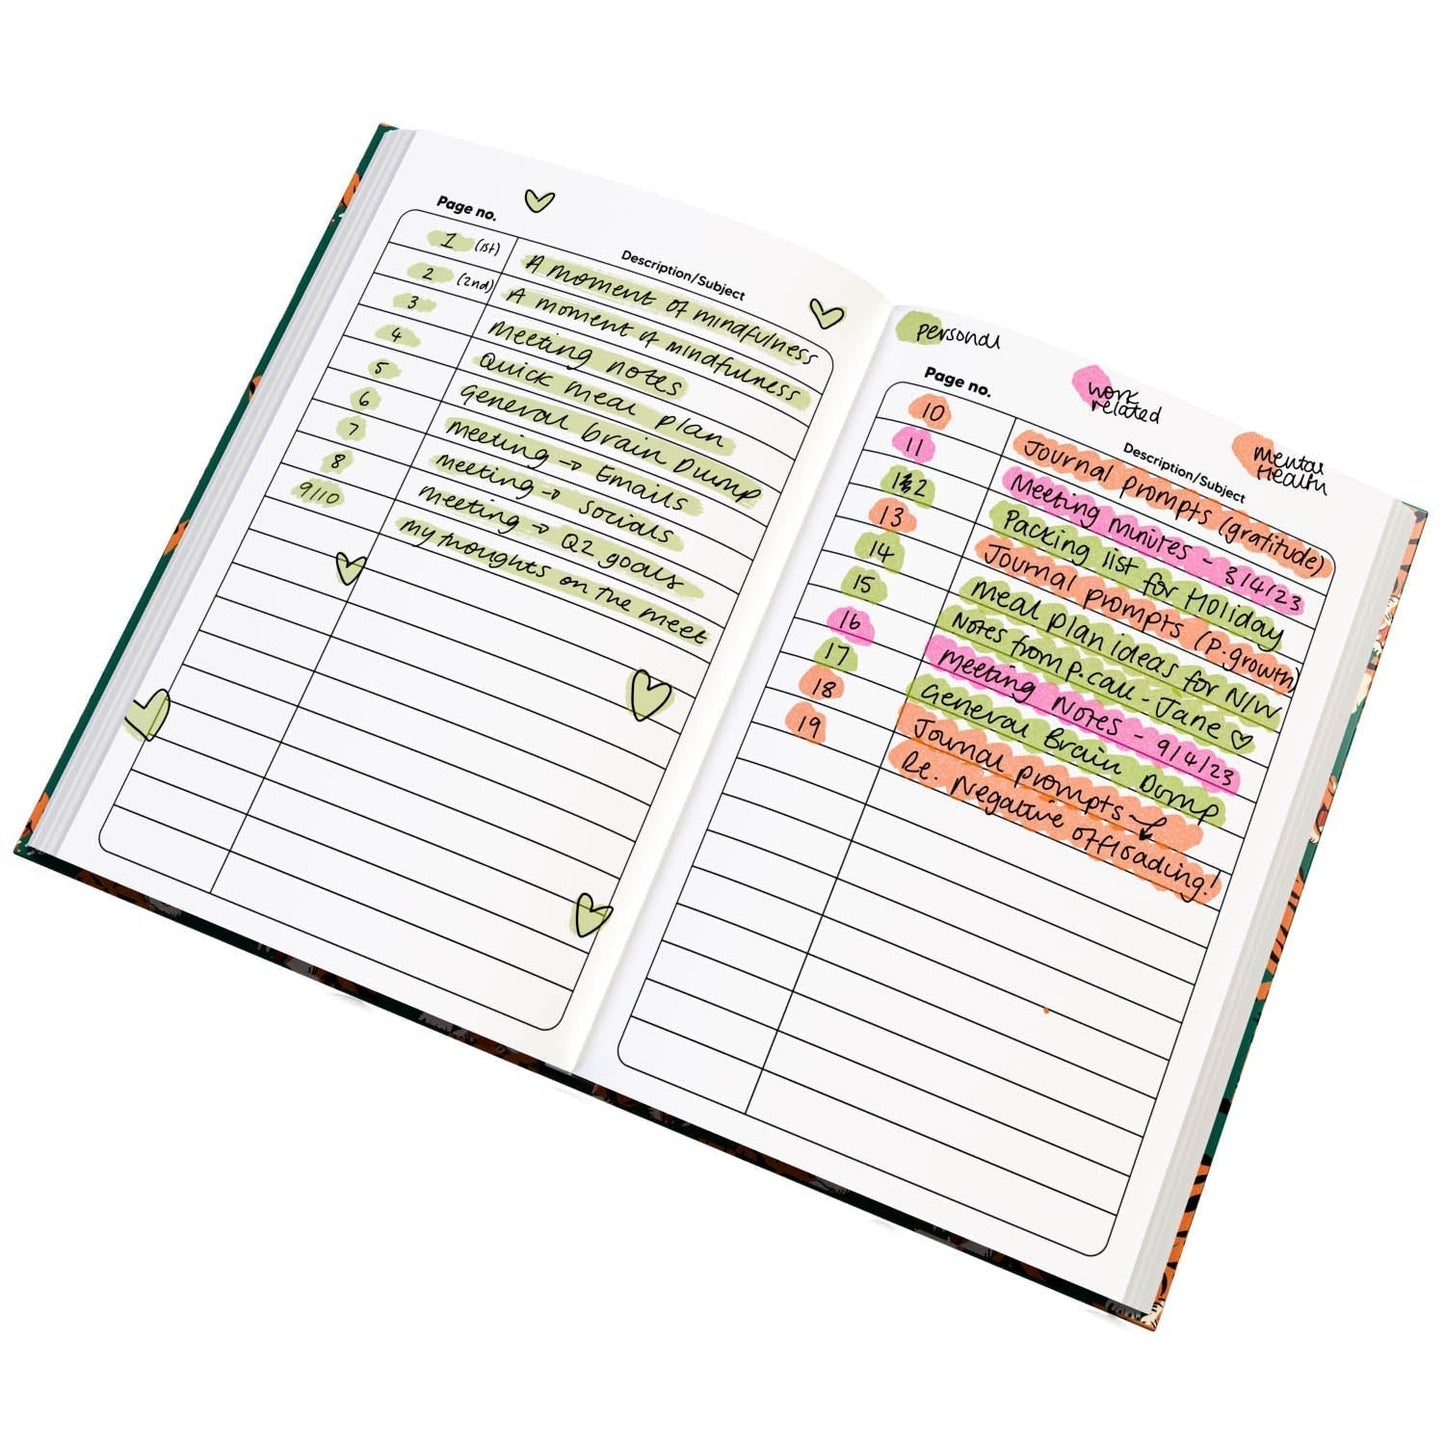 Page no.
Description/Subject
1 (1st) A moment of mindfulness
2 (2nd) A moment of mindfulness
3 Meeting notes
4 Quick meal plan
5 General brain Dump
6 meeting → Emails
7 meeting → socials
8 meeting → Q2 goals
9/10 my thoughts on the meet
personal
work
related
mental
Health
Page no.
Description/Subject
10 Journal prompts (gratitude)
11 Meeting minutes - 3/4/23
12 Packing list for Holiday
13 Journal prompts (P.growth)
14 meal plan ideas for N/W
15 Notes from P.call - Jane ♡
16 meeting notes - 9/4/23
17 General Brain Dump
18 Journal prompts
19 Re. Negative offloading!